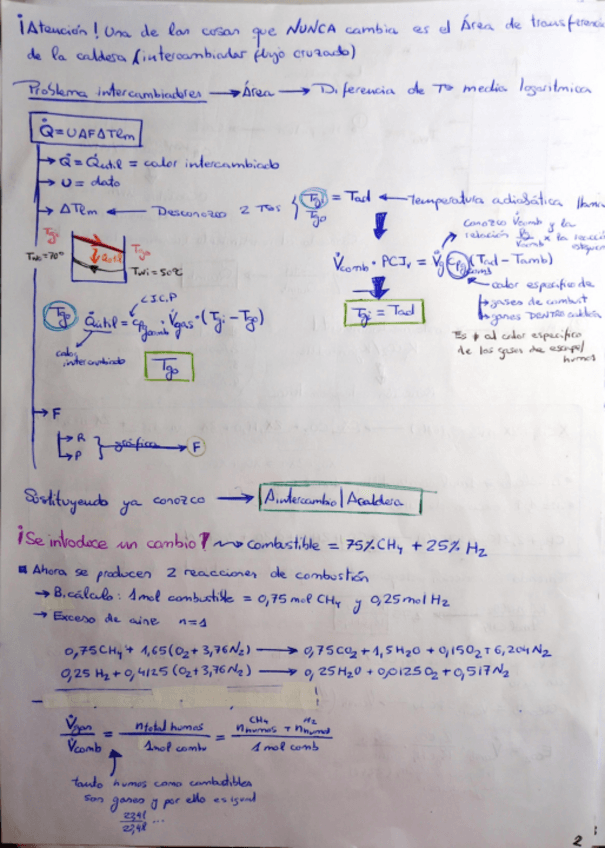 ¡Atención! Una de las cosas que NUNCA cambia es el Área de transferenc
de la caldera (intercambiador flujo cruzado)
Problema intercambiadores → Área → Diferencia de Tª media logarítmica
Q̇ = UAFΔTlm
→ Q̇ = Q̇útil = calor intercambiado
→ U = dato
→ ΔTlm ← Desconozco 2 Tas { Tgi = Tad ← Temperatura adiabática llama
Tgo
Tgi
Two = 70º
Tgo
Twi = 50ºC
conozco V̇comb y la
relación
V̇comb · PCIv = V̇g Cpg (Tad - Tamb)
calor específico de
gases de combust
gases DENTRO caldera
Tgi = Tad
Es ≠ al calor específico
de los gases de escape/
humos
Tgo Q̇útil = Cpgcomb · V̇gas · (Tgi - Tgo)
calor
intercambiado
Tgo
→ F
→ R
→ P } gráfica → F
Sustituyendo ya conozco → Aintercambio | Acaldera
¡Se introduce un cambio! combustible = 75% CH4 + 25% H2
■ Ahora se producen 2 reacciones de combustión
→ B.cálculo: 1 mol combustible = 0,75 mol CH4 y 0,25 mol H2
→ Exceso de aire n=1
0,75CH4 + 1,65(O2+3,76N2) → 0,75CO2 + 1,5H2O + 0,15O2 + 6,204N2
0,25 H2 + 0,4125 (O2+3,76N2) → 0,25H2O + 0,0125O2 + 0,517N2
V̇gas / V̇comb = ntotal humos / 1mol comb = (nhumos CH4 + nhumos H2) / 1 mol comb
tanto humos como combustibles
son gases y por ello es igual
22,4l / 22,4l ...
2